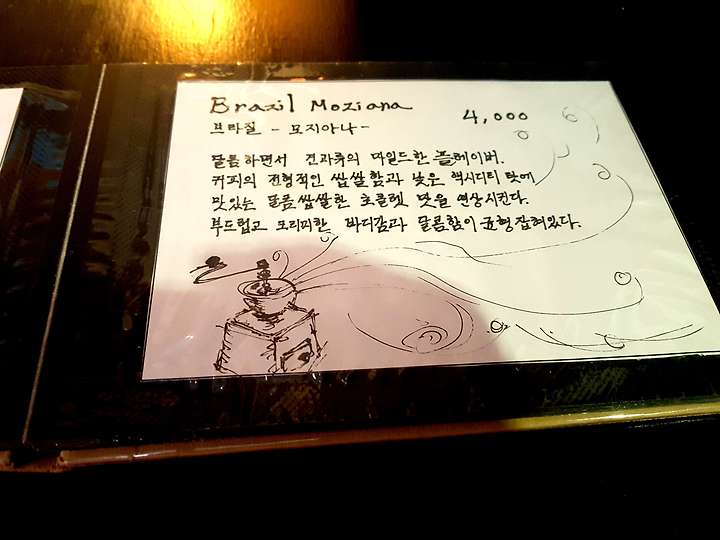 Brazil Moziana
4,000
브라질 - 모지아나 -
달콤하면서 견과류의 마일드한 플레이버.
커피의 전형적인 쌉쌀함과 낮은 액시디티 탓에
맛있는 달콤쌉쌀한 초콜렛 맛을 연상시킨다.
부드럽고 크리피한 바디감과 달콤함이 균형잡혀있다.